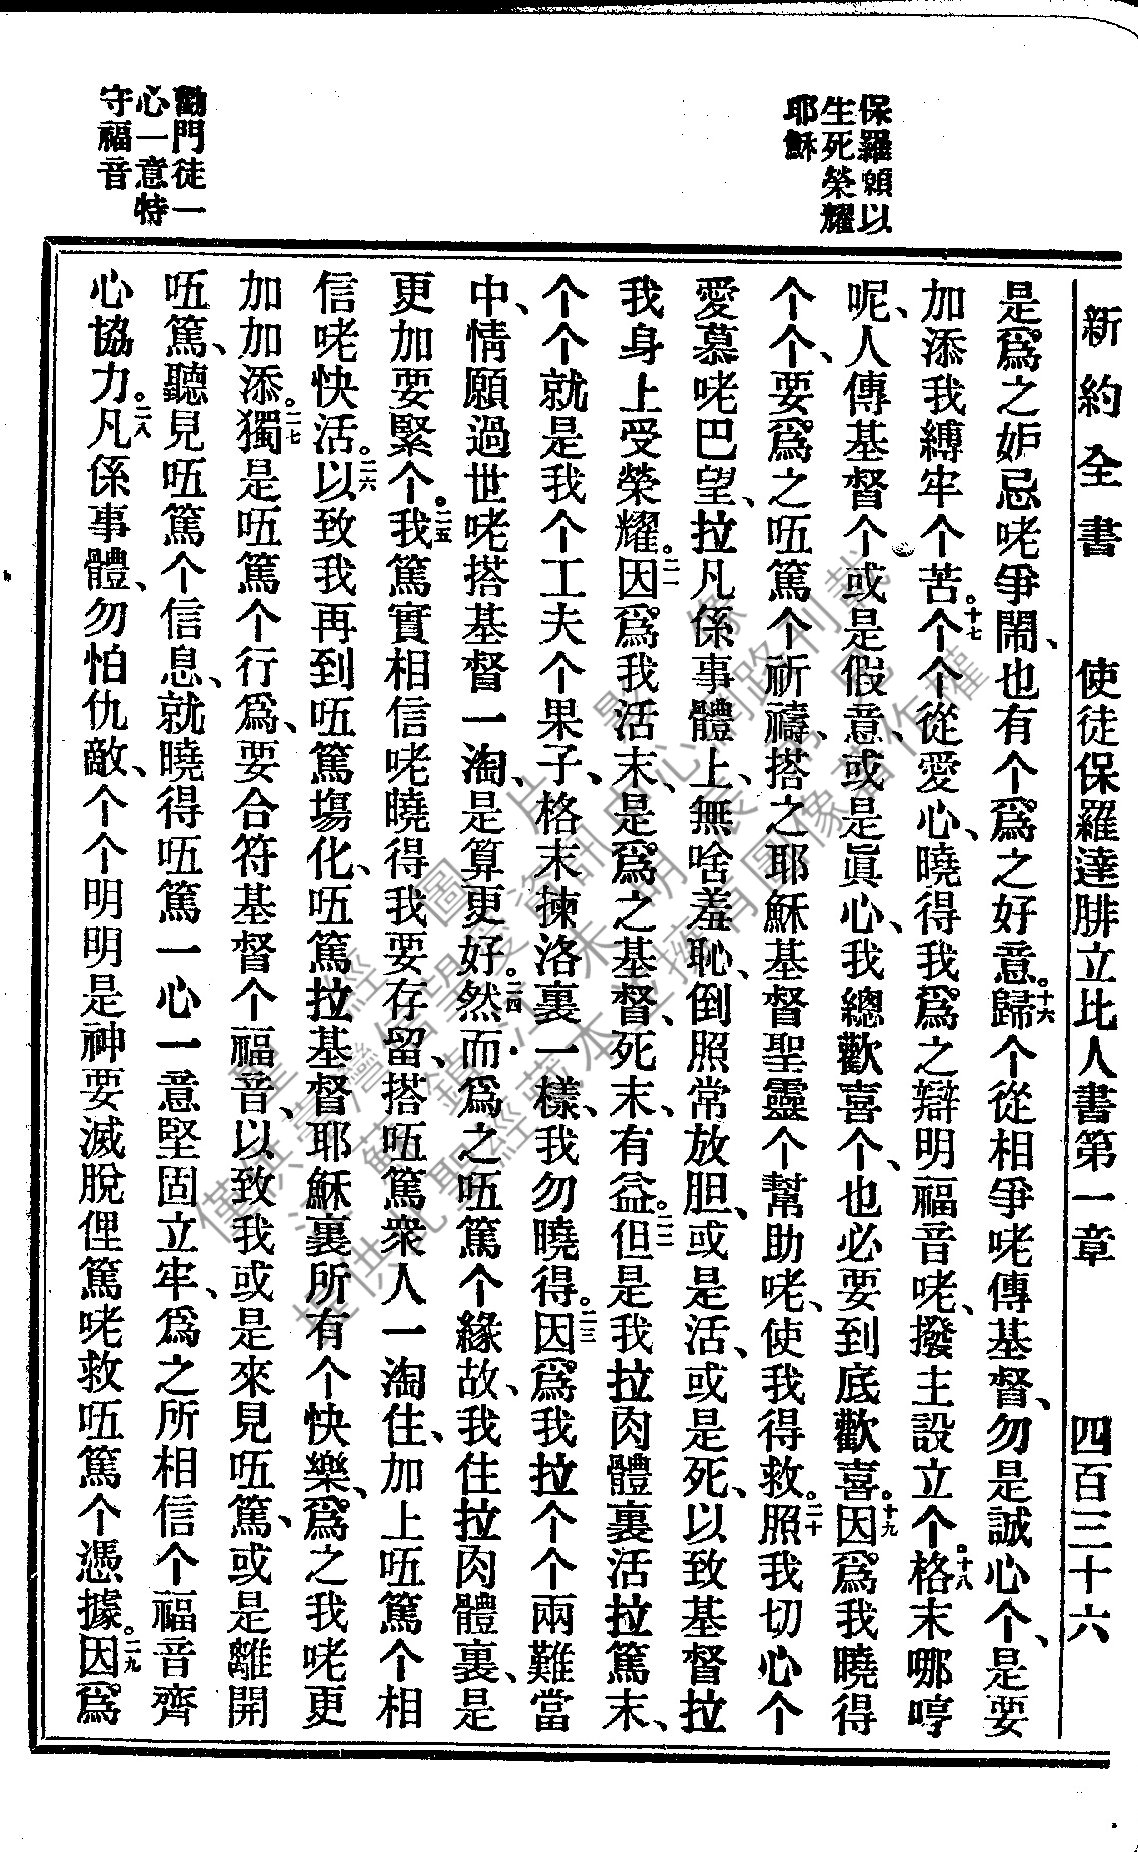 新約全書　使徒保羅達腓立比人書第一章　四百三十六
保羅願以
生死榮耀
耶穌
是爲之妒忌咾爭鬧、也有个爲之好意。十六歸个從相爭咾傳基督、勿是誠心个、是要
加添我縛牢个苦。十七个个從愛心、曉得我爲之辯明福音咾、撥主設立个。十八格末哪哼
呢、人傳基督个或是假意、或是眞心、我總歡喜个、也必要到底歡喜。十九因爲我曉得
个个、要爲之㕶篤个祈禱、搭之耶穌基督聖靈个幫助咾、使我得救。二十照我切心个
愛慕咾巴望、拉凡係事體上、無啥羞恥、倒照常放胆、或是活、或是死、以致基督拉
我身上受榮耀。二一因爲我活末、是爲之基督、死末、有益。二二但是我拉肉體裏活拉篤末、
个个就是我个工夫个果子、格末揀洛裏一樣、我勿曉得。二三因爲我拉个个兩難當
中、情願過世咾搭基督一淘、是算更好。二四然而爲之㕶篤个緣故、我住拉肉體裏、是
更加要緊个。二五我篤實相信咾曉得我要存留、搭㕶篤衆人一淘住、加上㕶篤个相
信咾快活。二六以致我再到㕶篤塲化、㕶篤拉基督耶穌裏所有个快樂、爲之我咾更
加加添。二七獨是㕶篤个行爲、要合符基督个福音、以致我或是來見㕶篤、或是離開
㕶篤、聽見㕶篤个信息、就曉得㕶篤一心一意堅固立牢、爲之所相信个福音齊
心協力。二八凡係事體、勿怕仇敵、个个明明是神要滅脫俚篤咾救㕶篤个憑據。二九因爲
勸門徒一
心一意特
守福音
聖經圖片影像
僅供臺灣信望愛資訊中心網路刊載
蘇鎮江
提供此聖經藏本並擁有圖像著作權